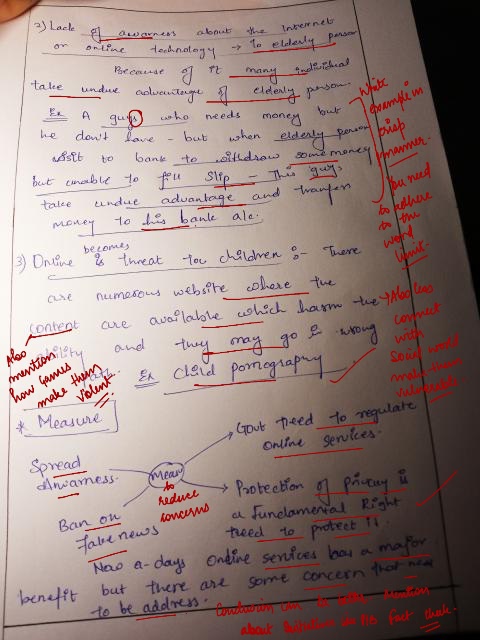 2) Lack of awarness about the Internet
or online technology → to elderly person
Because of it many individual
take undue advantage of elderly person.
Ex A guys who needs money but
he don't have - but when elderly person
visit to bank to withdraw some money
but unable to fill slip - This guys
take undue advantage and
money to his bank a/c.
Write example in crisp manner. You need to adhere to the word limit.
becomes
3) Online is threat to children :- There
are numerous website where the
content are available which harm the
ability and they may go in wrong
path. Ex Child pornography
Also mention how games make them violent.
→ Also less connect with social world make them vulnerable.
* Measure
Govt need to regulate
online services.
Spread
Awarness
Mean
to reduce concerns
Ban on
fake news
Protection of privacy is
a fundamental Right
need to protect it
Now a-days Online services has a major
benefit but there are some concern that need
to be address.
Conclusion can be mention
about initiatives like PIB fact check.